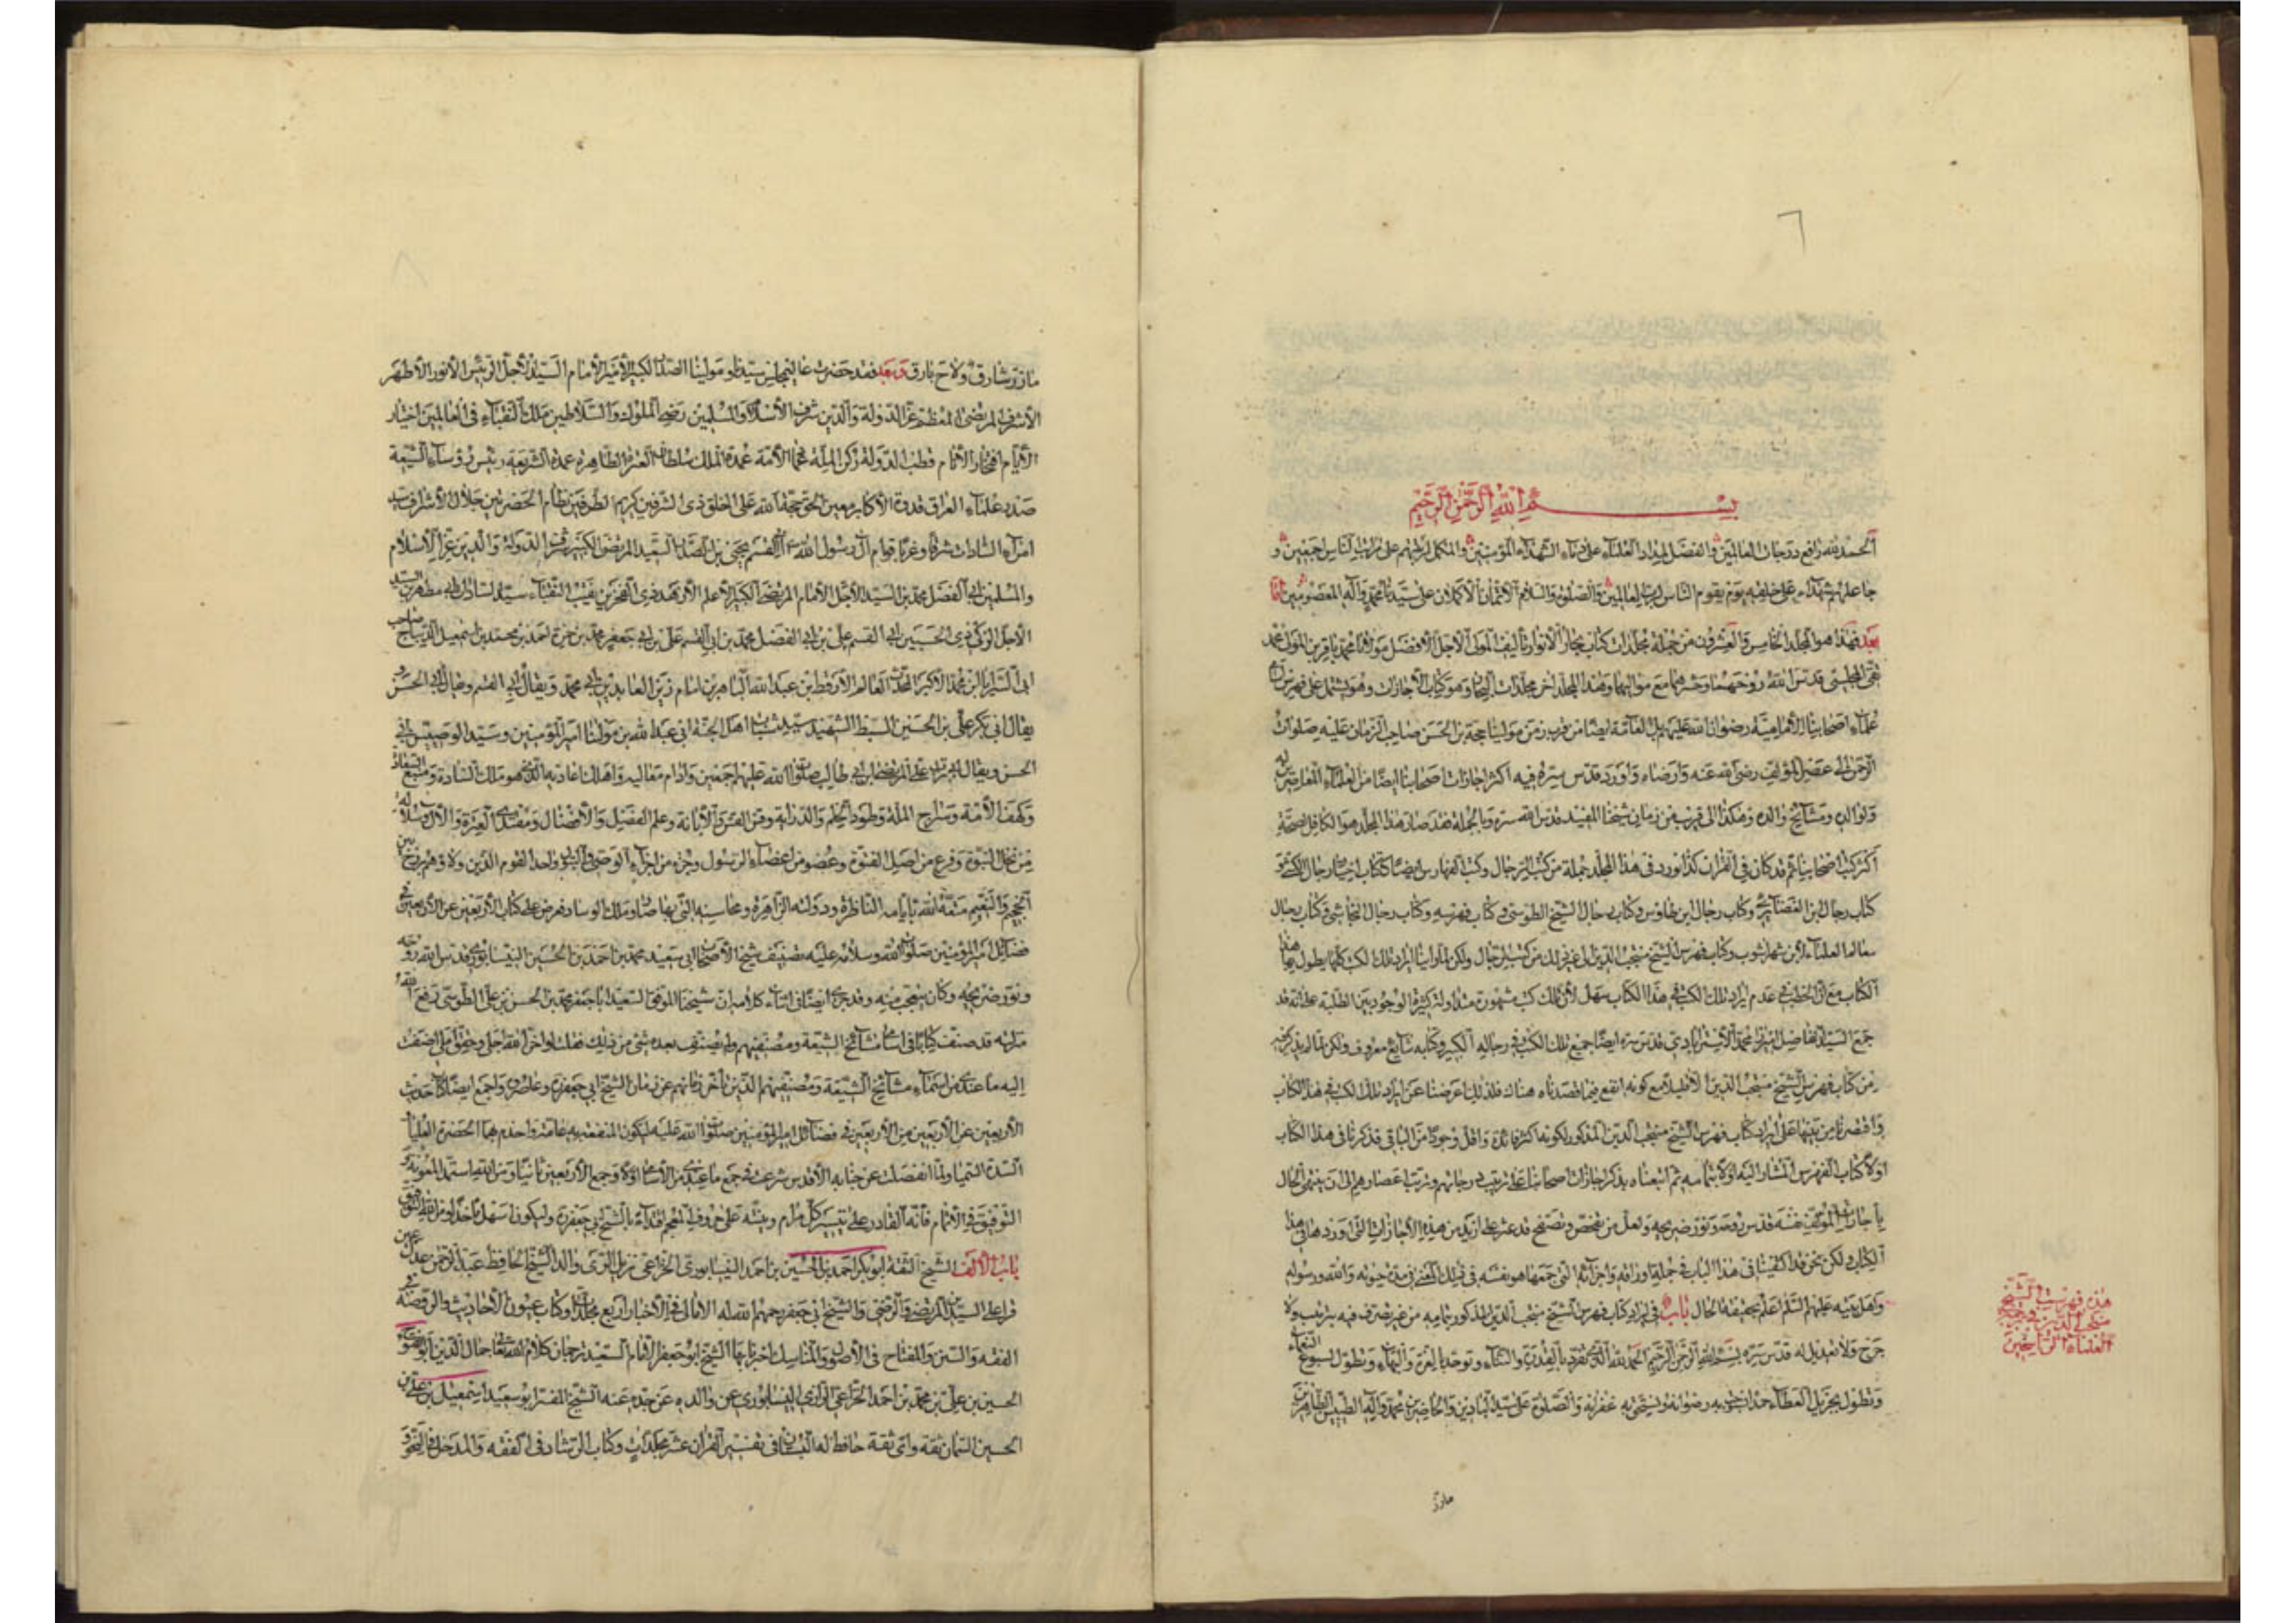 بسم الله الرحمن الرحيم
الحمد لله رافع درجات العالمين والمفضل لمداد العلماء على دماء الشهداء المؤمنين والمكمل لرتبهم على مراتب الناس اجمعين و
جاعلهم شهداء على خلقه يوم يقوم الناس لرب العالمين والصلوة والسلام الاتمان الاكملان على سيدنا محمد وآله المعصومين اما
بعد فهذا هو المجلد الخامس والعشرون من جملة مجلدات كتاب بحار الانوار تأليف المولى الاجل الافضل مولانا محمد باقر بن المولى محمد
تقي المجلسي قدس الله روحهما وحشرهما مع مواليهما وهذا المجلد آخر مجلدات البحار وهو كتاب الاجازات وهو يشتمل على فهرس
علماء اصحابنا الامامية رضوان الله عليهم بل العامة ايضا من قرب زمن مولينا حجة بن الحسن صاحب الزمان عليه صلوات
الرحمن الى عصر المؤلف رضي الله عنه وارضاه واورد قدس سره فيه اكثر اجازات اصحابنا ايضا من العلماء المعاصرين له
ولوالده ومشائخ والده وهكذا الى قريب من زمان شيخنا المفيد قدس الله سره وبالجملة فقد صار هذا المجلد هو الكافل لصحة
اكثر كتب اصحابنا ثم قد كان في القرآن كذا نورد في هذا المجلد جملة من كتب الرجال وكتب الفهارس ايضا ككتاب اختيار رجال الكشي و
كتاب رجال ابن الغضائري وكتاب رجال ابن طاوس وكتاب رجال الشيخ الطوسي وكتاب فهرسه وكتاب رجال النجاشي وكتاب رجال
معالم العلماء لابن شهراشوب وكتاب فهرس الشيخ منتجب الدين الى غير ذلك من كتب الرجال ولكن لما رأينا ايراد تلك الكتب كلها يطول بها هذا
الكتاب مع ان الخطب في عدم ايراد تلك الكتب في هذا الكتاب سهل لأن تلك كتب مشهورة متداولة كثيرة الوجود بين الطلبة على انه قد
جمع السيد الفاضل الميرزا محمد الاسترابادي قدس سره ايضا جميع تلك الكتب في رجاله الكبير وكتابه شايع معروف ولكن لما لم يذكر فيه
من كتاب فهرس الشيخ منتجب الدين الا قليلا مع كونه انفع فيما قصدناه هناك فلذلك اعرضنا عن ايراد تلك الكتب في هذا الكتاب
واقتصرنا من بينها على ايراد كتاب فهرس الشيخ منتجب الدين المذكور لكونها اكثر فائدة واقل وجودا من الباقي فذكرنا في هذا الكتاب
اولا كتاب الفهرس المشار اليه اولا بتمامه ثم اتبعناه بذكر اجازات اصحابنا على ترتيب درجاتهم وترتيب اعصارهم الى ان ينتهي الحال
باجازات المؤلف نفسه قدس روحه ونور ضريحه ولعل من تفحص وتصفح قد عثر على ازيد من هذه الاجازات التي اوردها في هذا
الكتاب ولكن نحن قد اكتفينا في هذا الباب في جملة اوراقه واجزائه التي جمعها هو نفسه في ذلك المعنى في مدة حيوته والله ورسوله
واهل بيته عليهم السلم اعلم بحقيقة الحال باب في ايراد كتاب فهرس الشيخ منتجب الدين المذكور بتمامه من غير تصرف فيه بترتيب ولا
جرح ولا تعديل له قدس سره بسم الله الرحمن الرحيم الحمد لله الذي تفرد بالقدرة والسناء وتوحد بالعزة والبهاء وتطول بسبوغ النعماء
وتطول بجزيل العطاء حمدا نستوجب به رضوانه ونستحق به غفرانه والصلوة على سيد البادين والحاضرين محمد وآله الطيبين الطاهرين
ماذر
هذه فهرست الشيخ
منتجب الدين في ترجمة
العلماء الراسخين
ماذر شارق ولاح بارق وبعد فقد حضرت عالي مجلس سيدنا ومولينا الصدر الكبير الامير الامام السيد الاجل الرئيس الانور الاطهر
الاشرف المرتضى المعظم عز الدولة والدين شرف الاسلام والمسلمين رضي الملوك والسلاطين ملك النقباء في العالمين اختيار
الايام افتخار الانام قطب الدولة ركن الملة عماد الامة عمدة الملك سلطان العترة الطاهرة عمدة الشريعة رئيس رؤساء الشيعة
صدر علماء العراق قدوة الاكابر معين الحق حجة الله على الخلق ذي الشرفين كريم الطرفين نظام الحضرتين جلال الاشراف سيد
امراء السادات شرقا وغربا قوام آل رسول الله ابي القسم يحيى بن الصدر السعيد المرتضى الكبير شرف الدولة والدين عز الاسلام
والمسلمين ابي الفضل محمد بن السيد الاجل الامام المرتضى الكبير الاعلم الازهد ذي الفخرين نقيب النقباء سيد السادات ابي مطهر بن السيد
الاجل الزكي ذي الحسبين ابي القسم علي بن ابي الفضل محمد بن ابي القسم علي بن ابي جعفر محمد بن حمزة بن احمد بن محمد بن اسمعيل الديباج صاحب
ابي السرايا ابن محمد الاكبر المحدث العالم الارقط بن عبد الله الباهر بن امام زين العابدين ابي محمد ويقال ابي القسم ويقال ابي الحسن و
يقال ابي بكر علي بن الحسين السبط الشهيد سيد شباب اهل الجنة ابي عبد الله بن مولينا امير المؤمنين وسيد الوصيين ابي
الحسن ويقال ابي تراب علي المرتضى ابن ابي طالب صلوات الله عليهم اجمعين وادام معاليه واهلك اعاديه الذي هو ملك السادة ومنبع السعادة
وكهف الامة وسراج الملة وطود الحلم والدراية وقس القسر والأبانة وعلم الفضل والافضال ومقتدى العترة والآل سلالة
من نجل النبوة وفرع من اصل الفتوة وعضو من اعضاء الرسول وجزء من اجزاء الوصي والبتول واحد القوم الذين ولاؤهم برزخ بين
الجحيم والنعيم متعه الله بايامه الناظرة ودولته الزاهرة ومحاسنه التي بها صار ملك الوساد فعرض علي كتاب الاربعين عن الاربعين في
فضائل امير المؤمنين صلوات الله وسلامه عليه تصنيف شيخ الاصحاب ابي سعيد محمد بن احمد بن الحسين النيسابوري قدس الله روحه
ونور ضريحه وكان يتعجب منه وقد جرى ايضا في اثناء كلامه ان شيخنا الموفق السعيد ابا جعفر محمد بن الحسن بن علي الطوسي رفع الله
منزلته قد صنف كتابا في اسامي مشائخ الشيعة ومصنفيهم ولم يصنف بعده شيء من ذلك فقلت لو اخر الله اجلي وحقق املي اضفت
اليه ما عندي من اسماء مشائخ الشيعة ومصنفيهم الذين تأخر زمانهم عن زمان الشيخ ابي جعفر ره وعاصروه واجمع ايضا كتاب حديث
الاربعين عن الاربعين من الاربعين في فضائل امير المؤمنين صلوات الله عليه ليكون المنفعة به عامة واخدم بهما الحضرة العليا
السدة السمياء ولما انفصلت عن جنابه الاقدس شرعت في جمع ما عندي من الاسامي اولا وجمع الاربعين ثانيا ومن الله استمد المعونة و
التوفيق في الاتمام فانه القادر على تيسير كل مرام وبنيته على حروف المعجم اقتداء بالشيخ ابي جعفر ره وليكون اسهل مأخذا ومن الله التوفيق
باب الالف الشيخ الثقة ابو بكر احمد بن الحسين بن احمد النيسابوري الخزاعي نزيل الري والد الشيخ الحافظ عبد الرحمن عدل عين
قرأ على السيدين المرتضى والرضي والشيخ ابي جعفر رحمهم الله له الامالي في الاخبار اربع مجلدات وكتاب عيون الاحاديث والروضة في
الفقه والسنن والمفتاح في الاصول والمناسك اخبرنا بها الشيخ ابو جعفر الامام السعيد ترجمان كلام الله تعالى جمال الدين ابو الفتوح
الحسين بن علي بن محمد بن احمد الخزاعي الرازي النيسابوري عن والده عن جده عنه الشيخ المفسر ابو سعيد اسمعيل بن علي بن
الحسين السمان ثقة واي ثقة حافظ له البستان في تفسير القرآن عشر مجلدات وكتاب الرشاد في الفقه والمدخل في النحو و